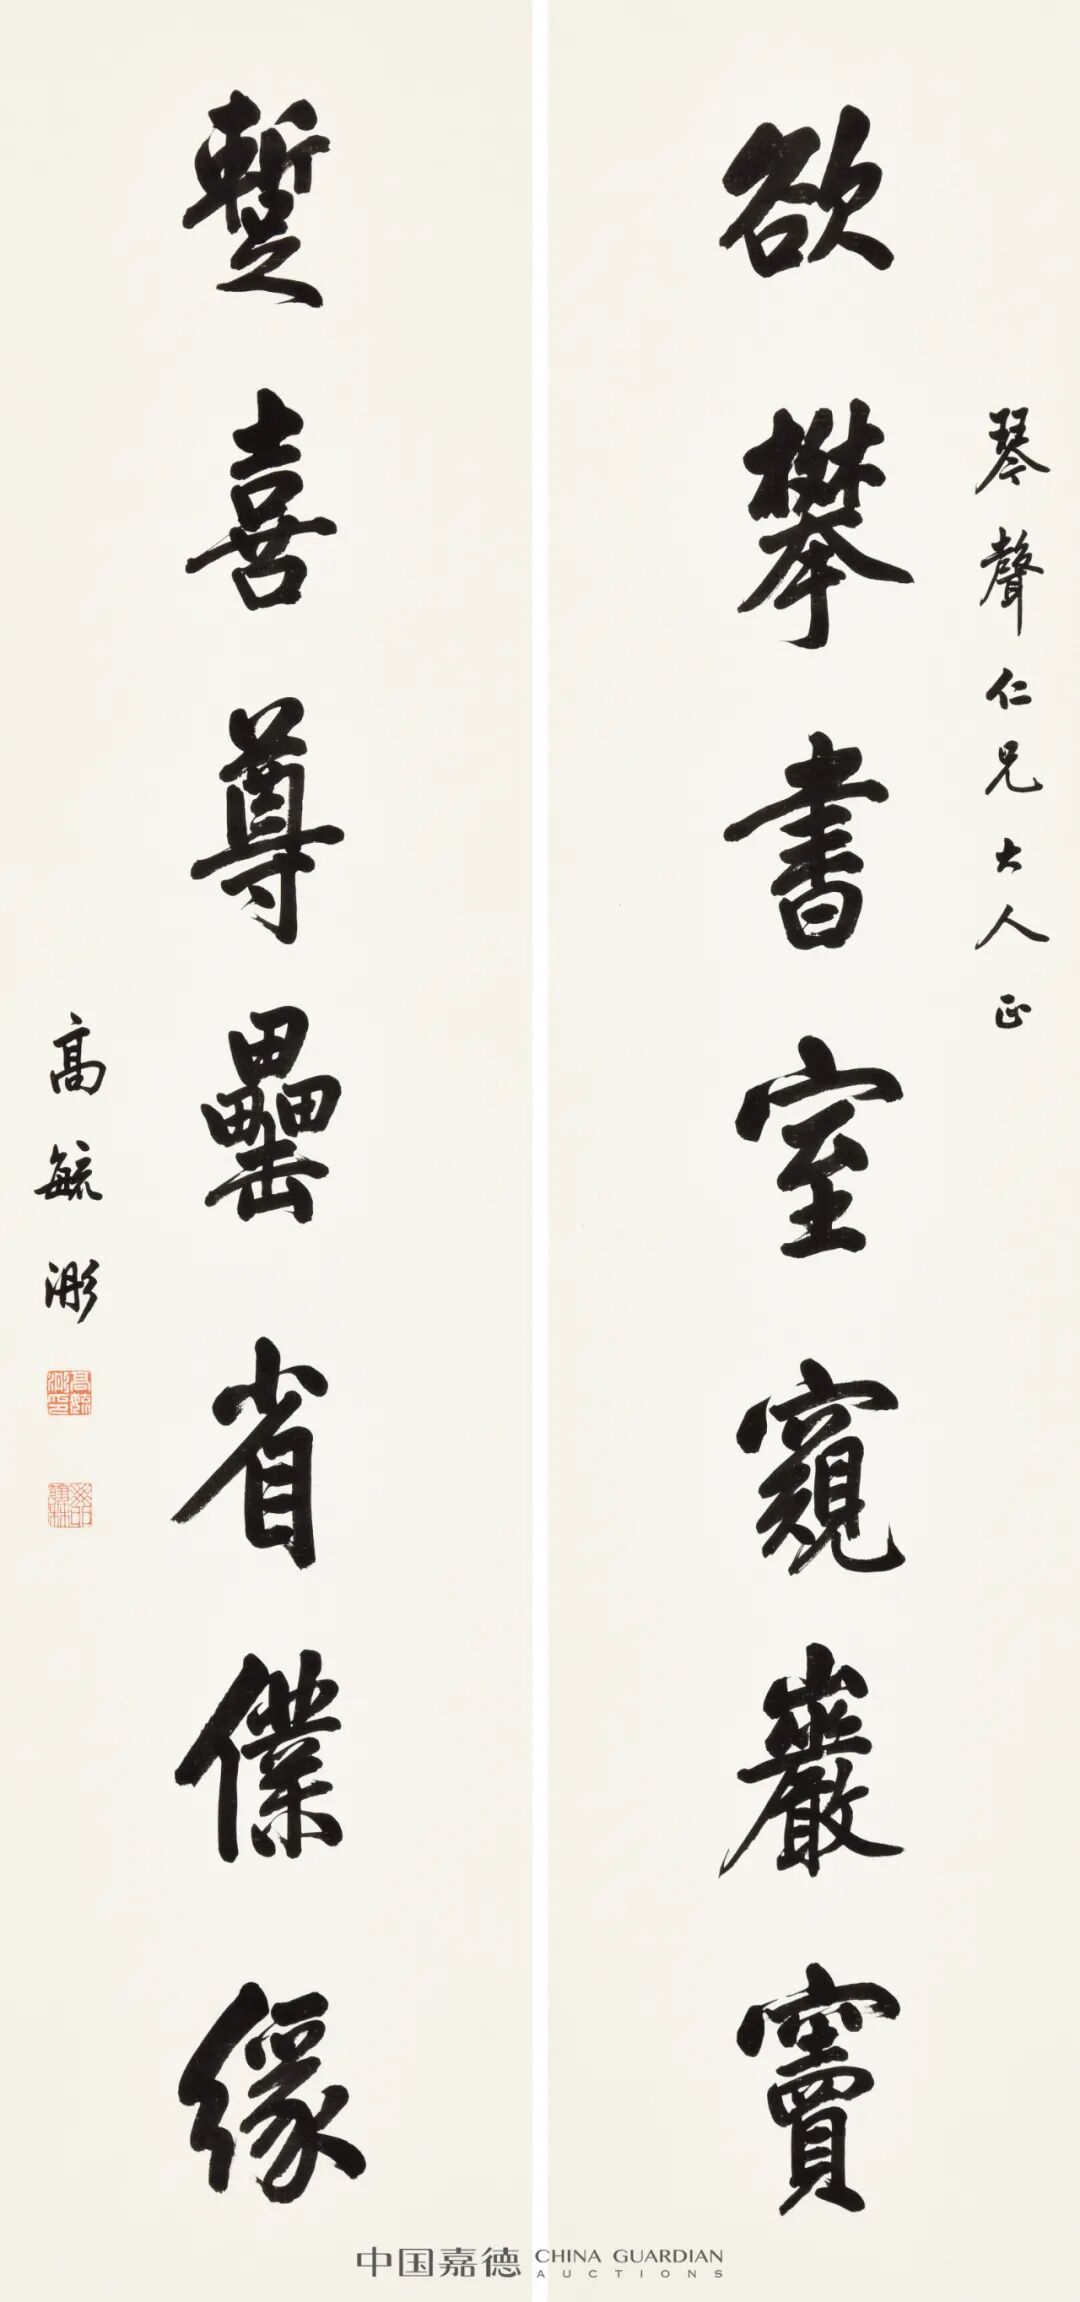 琴聲仁兄大人正
欲攀書室窺巖竇
蹔喜尊罍省僕緣
高毓浵
高毓浵印
中国嘉德 CHINA GUARDIAN
AUCTIONS